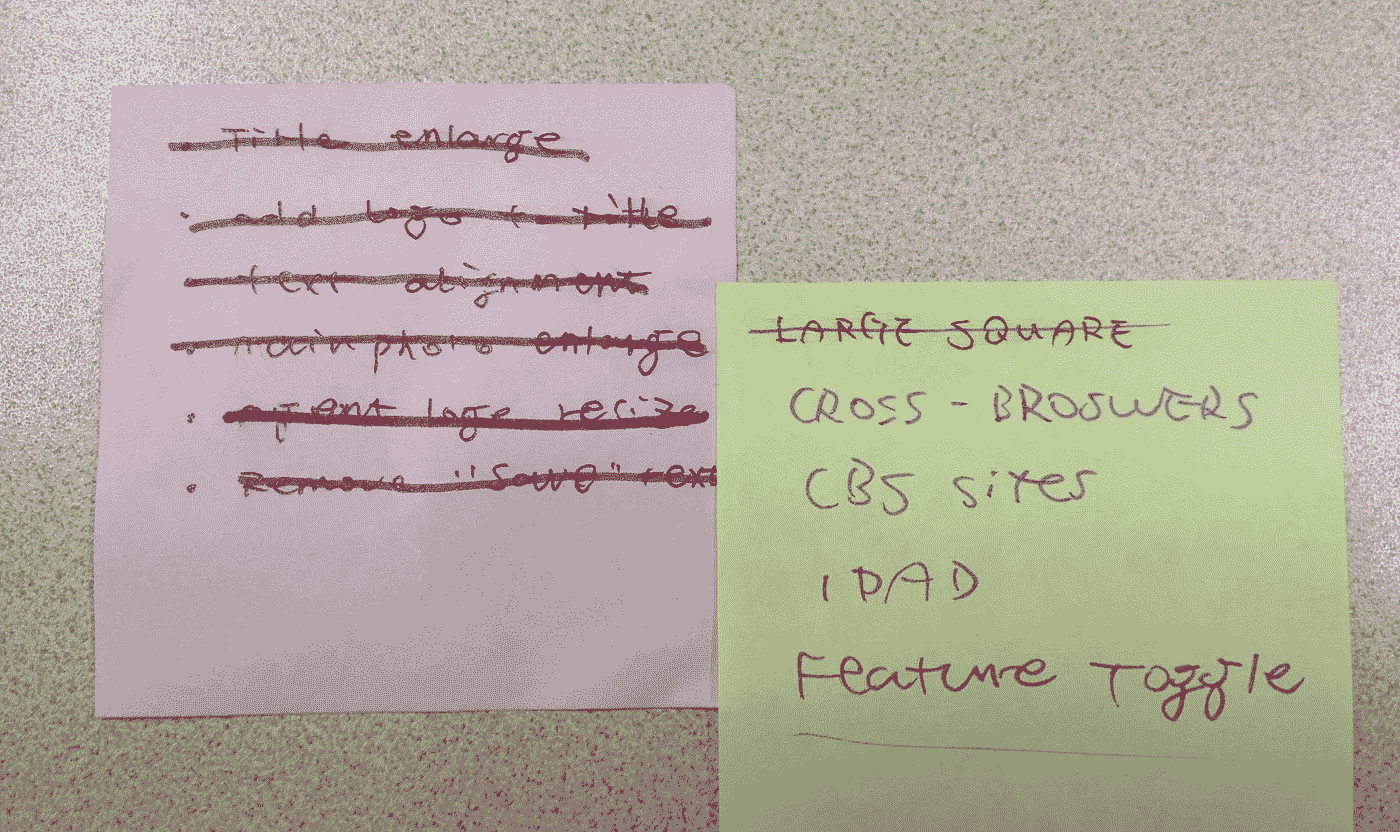 . Title enlarge
. add logo title
. text alignment
. main photo enlarge
. logo resize
. Remove "Save" text
LARGE SQUARE
CROSS - BROSWERS
CBS sites
IPAD
Feature Toggle